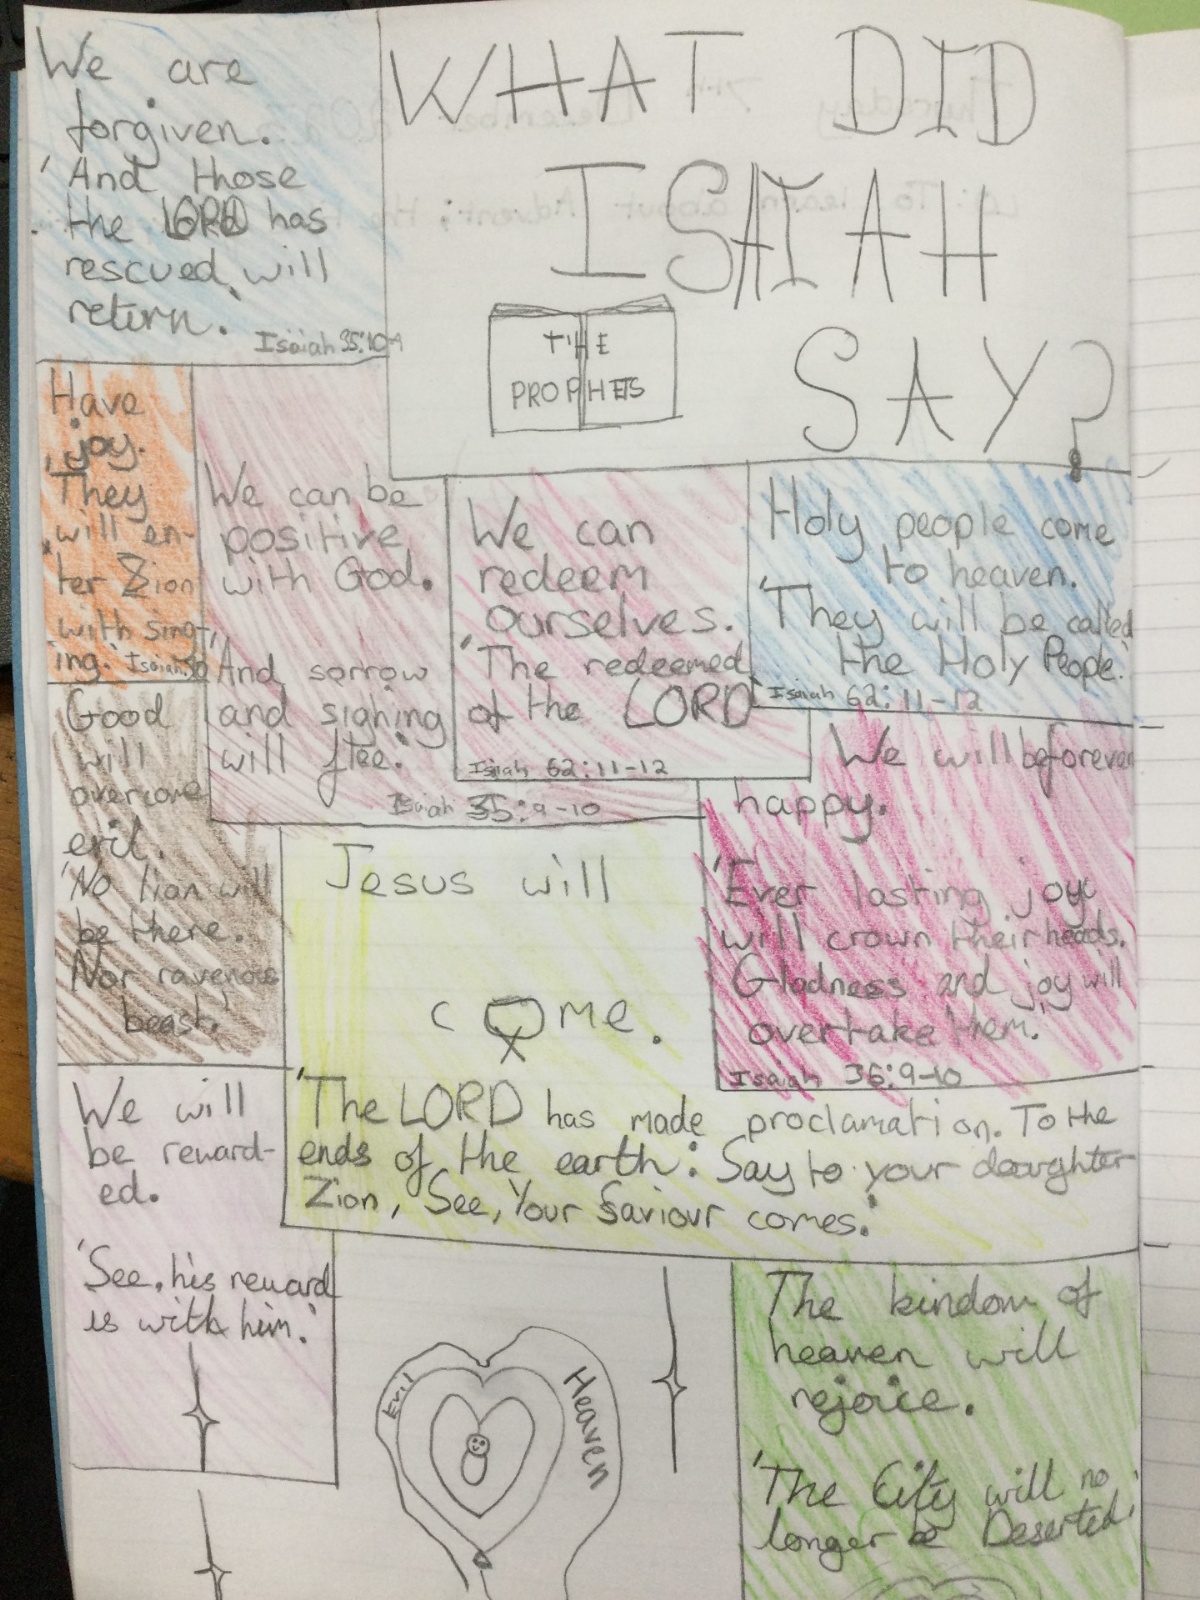 We are
forgiven.
'And those
the LORD has
rescued will
return.'
Isaiah 35:10
WHAT DID
ISAIAH
SAY?
THE
PROPHETS
Have
joy.
'They
will en-
ter Zion
with sing-
ing.' Isaiah
We can be
positive
with God.
'And sorrow
and sighing
will flee.'
Isaiah 35:9-10
We can
redeem
ourselves.
'The redeemed
of the LORD'
Isaiah 62:11-12
Holy people come
to heaven.
'They will be called
the Holy People.'
Isaiah 62:11-12
Good
will
overcome
evil.
'No lion will
be there.
Nor ravenous
beast.'
We will beforever
happy.
'Ever lasting joy
will crown their heads.
Gladness and joy will
overtake them.'
Isaiah 36:9-10
Jesus will
come.
'The LORD has made proclamation. To the
ends of the earth: Say to your daughter
Zion, See, Your Saviour comes.'
We will
be reward-
ed.
'See, his reward
is with him.'
Evil
Heaven
The kindom of
heaven will
rejoice.
'The City will no
longer be Deserted.'